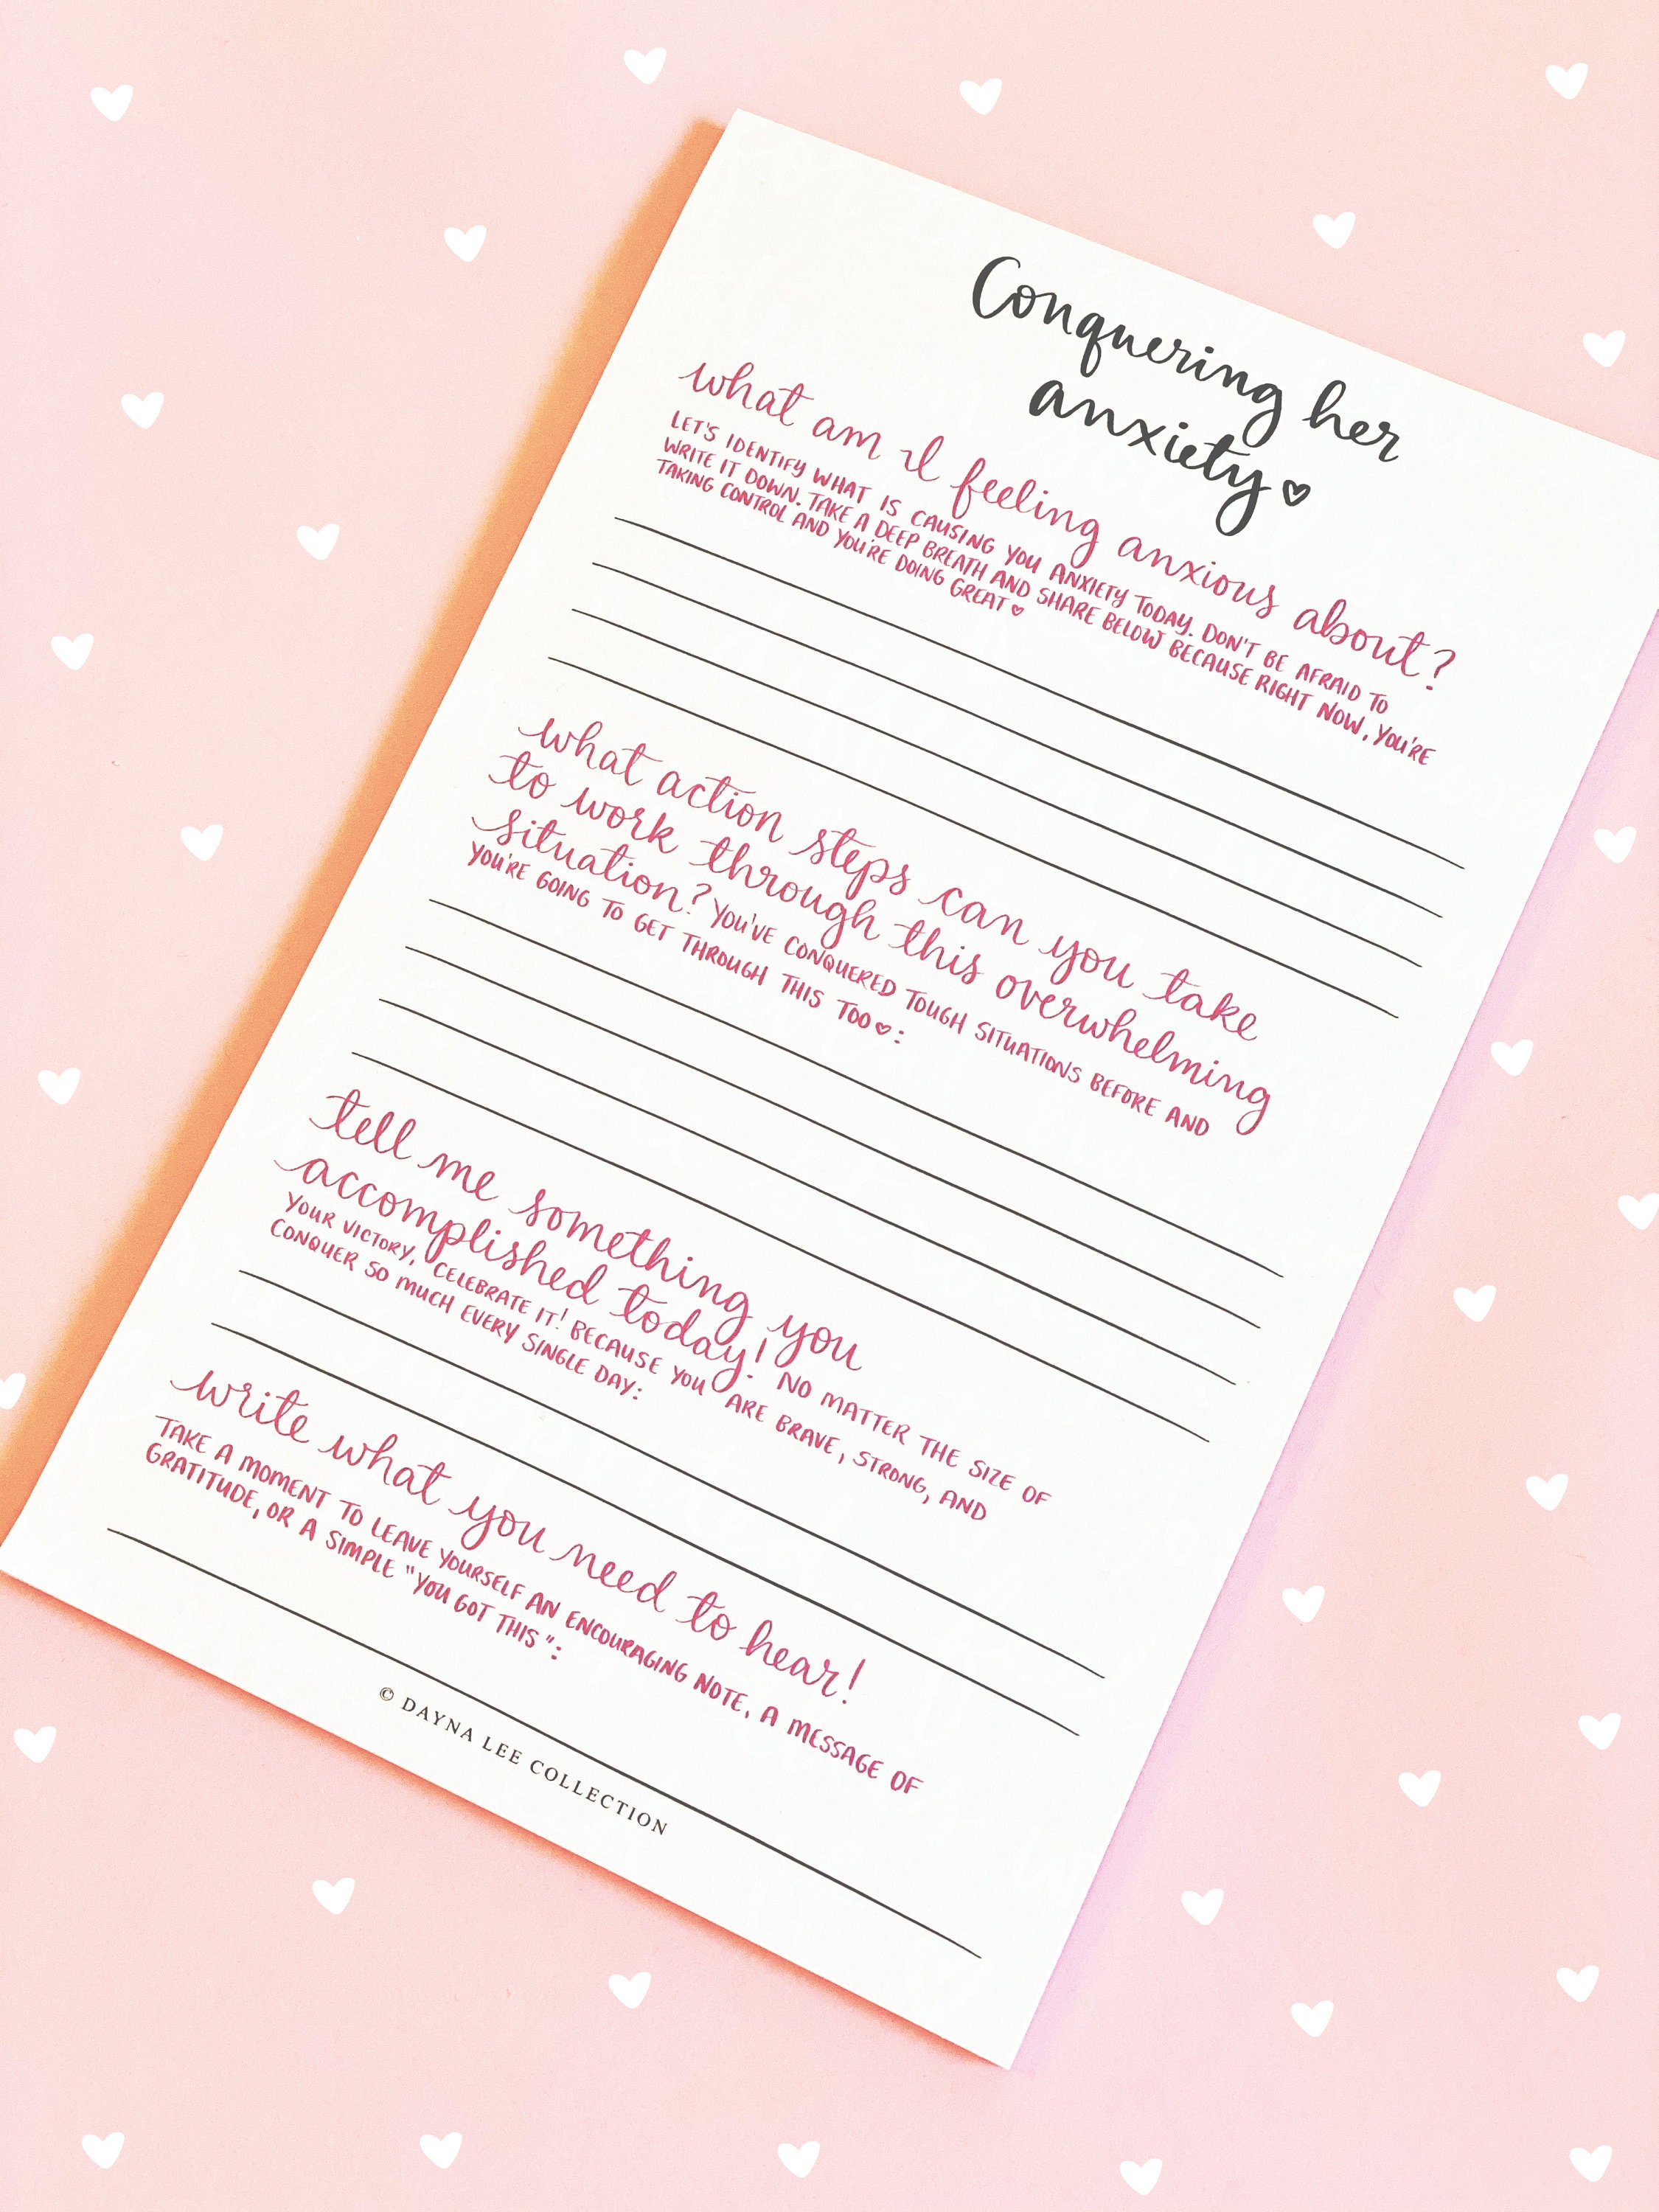 Conquering her
anxiety♡
what am I feeling anxious about?
LET'S IDENTIFY WHAT IS CAUSING YOU ANXIETY TODAY. DON'T BE AFRAID TO
WRITE IT DOWN. TAKE A DEEP BREATH AND SHARE BELOW BECAUSE RIGHT NOW, YOU'RE
TAKING CONTROL AND YOU'RE DOING GREAT♡
what action steps can you take
to work through this overwhelming
situation? YOU'VE CONQUERED TOUGH SITUATIONS BEFORE AND
YOU'RE GOING TO GET THROUGH THIS TOO♡:
tell me something you
accomplished today! NO MATTER THE SIZE OF
YOUR VICTORY, CELEBRATE IT! BECAUSE YOU ARE BRAVE, STRONG, AND
CONQUER SO MUCH EVERY SINGLE DAY:
write what you need to hear!
TAKE A MOMENT TO LEAVE YOURSELF AN ENCOURAGING NOTE, A MESSAGE OF
GRATITUDE, OR A SIMPLE "YOU GOT THIS":
© DAYNA LEE COLLECTION